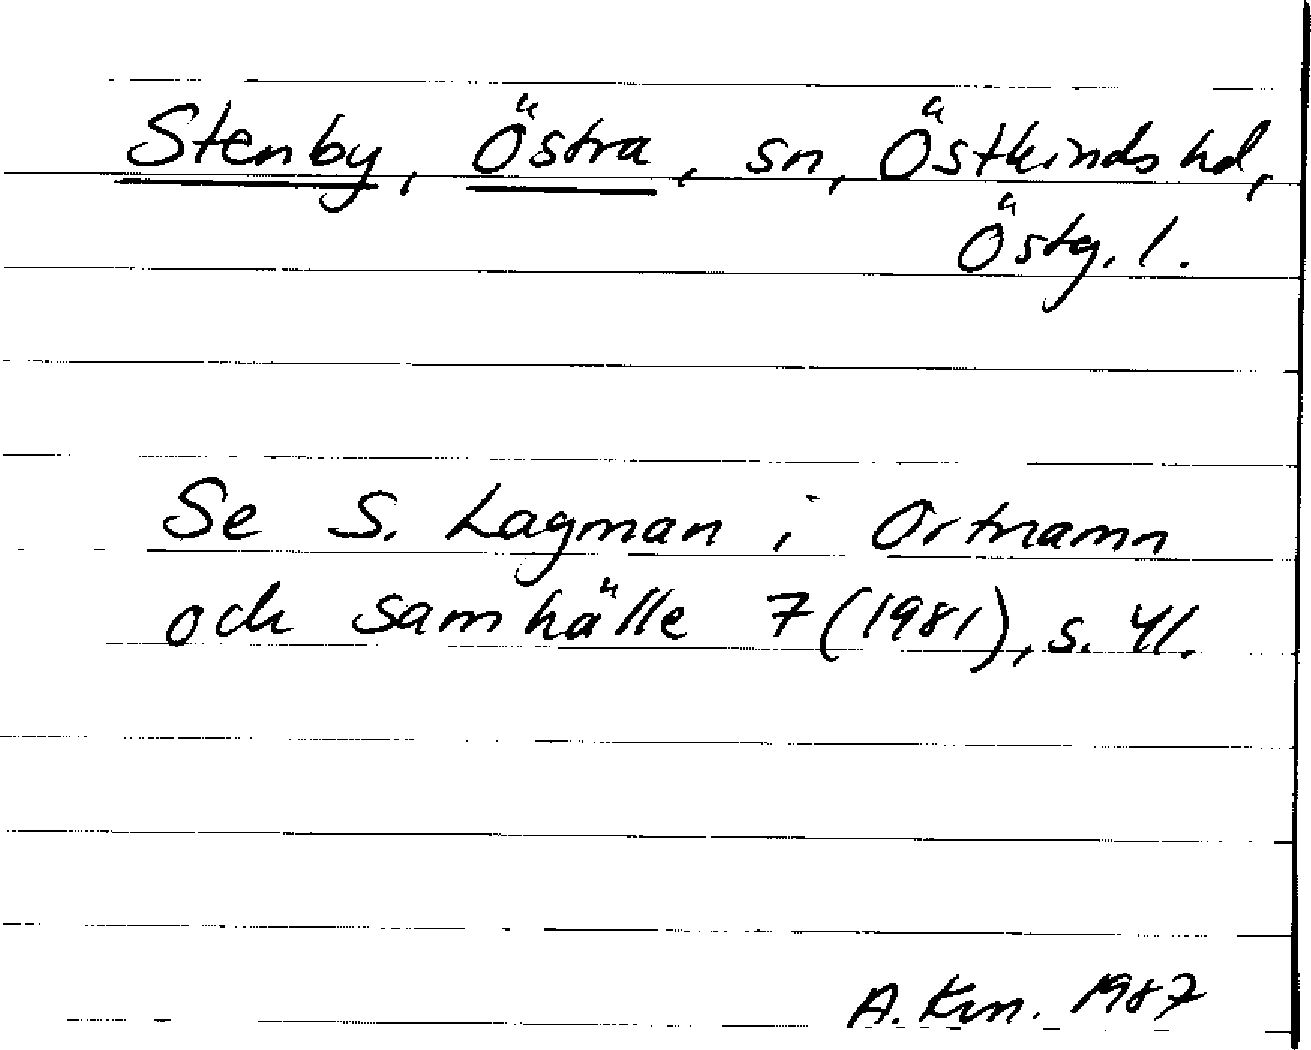 Stenby, Östra, sn, Östkinds hd,
Östg. l.
Se S. Lagman i Ortnamn
och samhälle 7 (1981), s. 41.
A. Krn. 1987